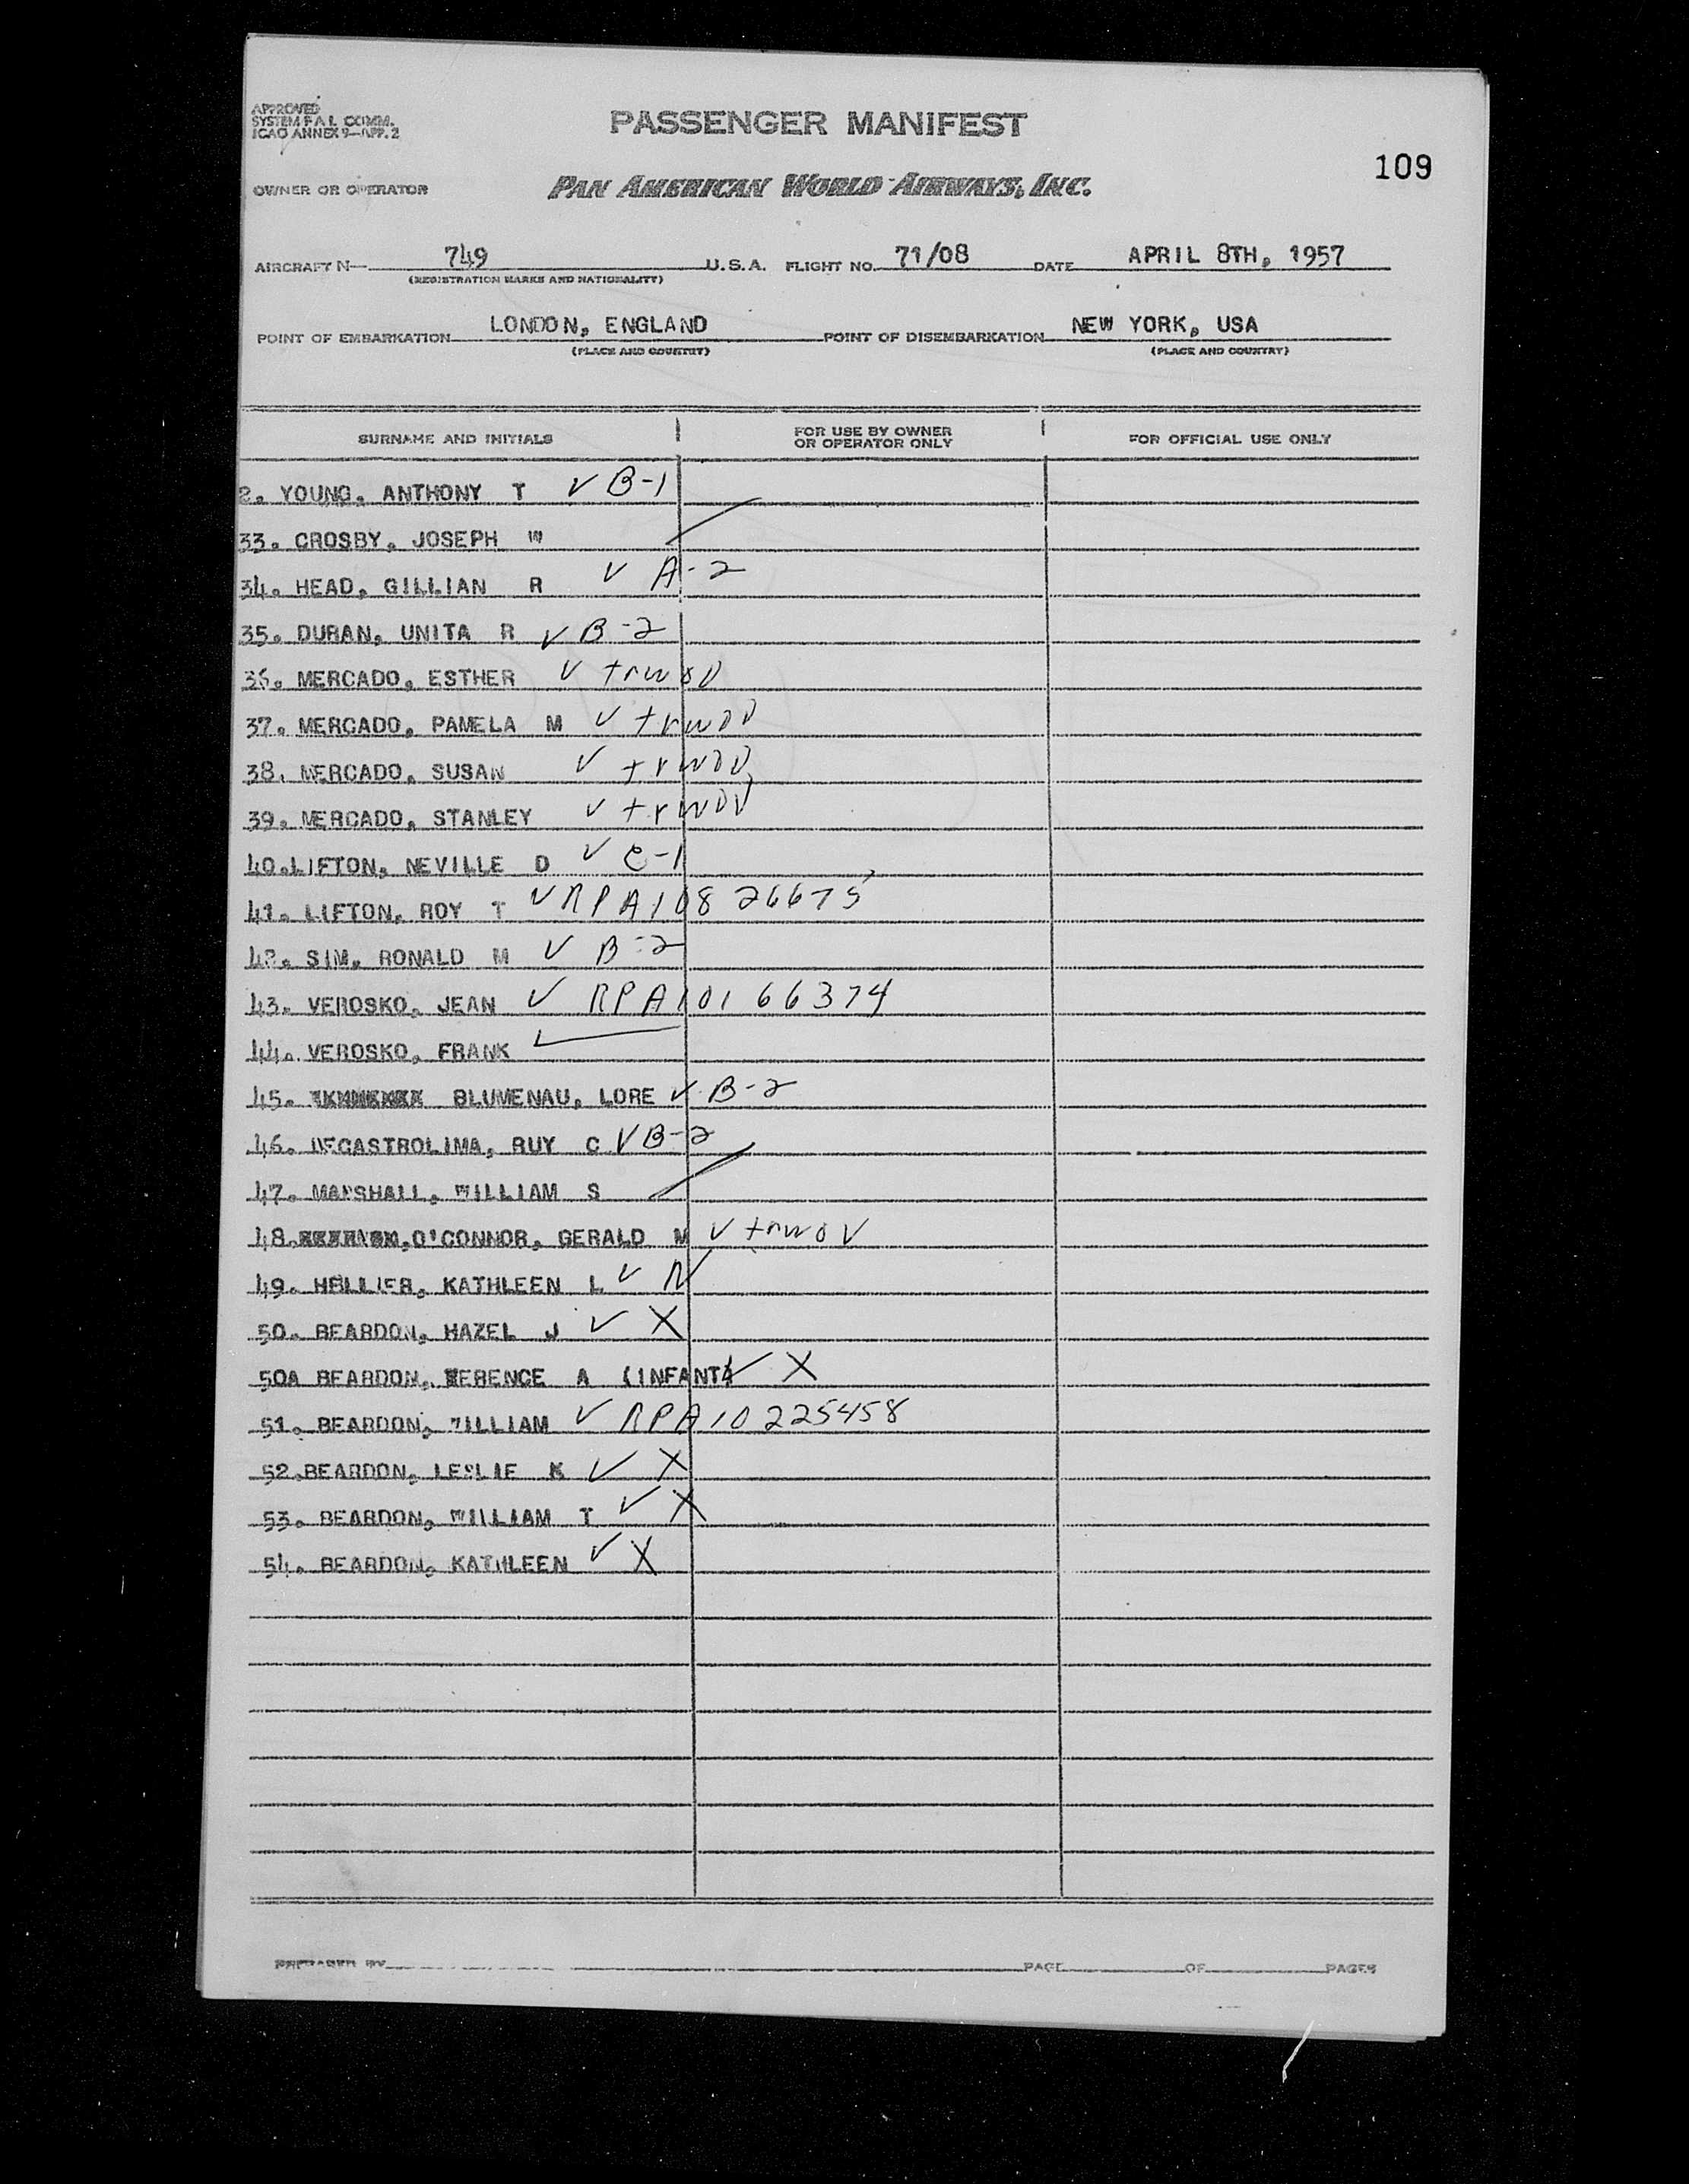 APPROVED
SYSTEM F A L COMM.
ICAO ANNEX 9—APP. 2
PASSENGER MANIFEST
109
OWNER OR OPERATOR
PAN AMERICAN WORLD AIRWAYS, INC.
AIRCRAFT N— 749 U.S.A. FLIGHT NO. 71/08 DATE APRIL 8TH, 1957
(REGISTRATION MARKS AND NATIONALITY)
POINT OF EMBARKATION LONDON, ENGLAND POINT OF DISEMBARKATION NEW YORK, USA
(PLACE AND COUNTRY) (PLACE AND COUNTRY)
SURNAME AND INITIALS FOR USE BY OWNER OR OPERATOR ONLY FOR OFFICIAL USE ONLY
2. YOUNG, ANTHONY T ✓ B-1
33. CROSBY, JOSEPH W
34. HEAD, GILLIAN R ✓ A-2
35. DURAN, UNITA R ✓ B-2
36. MERCADO, ESTHER ✓ trwov
37. MERCADO, PAMELA M ✓ trwov
38. MERCADO, SUSAN ✓ trwov
39. MERCADO, STANLEY ✓ trwov
40. LIFTON, NEVILLE D ✓ C-1
41. LIFTON, ROY T ✓ RPA10826675
42. SIM, RONALD M ✓ B-2
43. VEROSKO, JEAN ✓ RPA10166374
44. VEROSKO, FRANK ✓
45. BLUMENAU, LORE ✓ B-2
46. DECASTROLIMA, RUY C ✓ B-2
47. MARSHALL, WILLIAM S
48. O'CONNOR, GERALD M ✓ trwov
49. HELLIER, KATHLEEN L ✓ N
50. BEARDON, HAZEL J ✓ X
50A BEARDON, TERENCE A (INFANT) ✓ X
51. BEARDON, WILLIAM ✓ RPA10225458
52. BEARDON, LESLIE K ✓ X
53. BEARDON, WILLIAM T ✓ X
54. BEARDON, KATHLEEN ✓ X
PREPARED BY PAGE OF PAGES